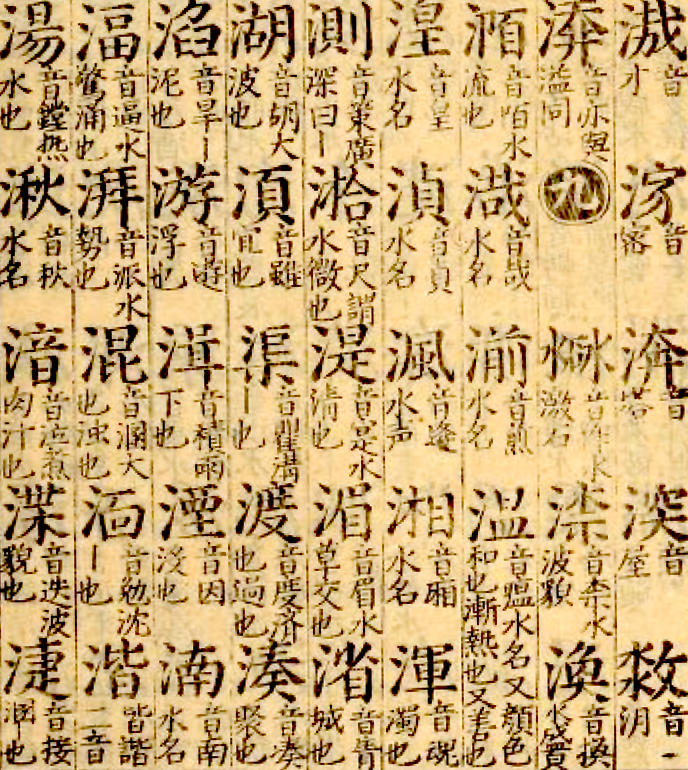 音
才
音
窋
音
塔
突 音
屋
敎 音一
汮
音亦與
溢同
九
音奈水
波貌
渙 音換
音陌水
流也
渽 音哉
水名
湔 音煎
水名
温 音瘟水名又顔色
和也漸熱也又善也
湟 音皇
水名
湞 音貞
水名
渢 音逢
水声
湘 音廂
水名
渾 音魂
濁也
測 音策廣
深曰丨
湁 音尺謂
水微也
湜 音寔水
清也
湄 音眉水
草交也
渻 音青
城也
湖 音胡大
波也
湏 音雖
宜也
渠 音瞿溝
丨也
渡 音度濟
也過也
湊 音凑
聚也
淊 音旱丨
泥也
游 音遊
浮也
湒 音積雨
下也
湮 音因
沒也
湳 音南
水名
湢 音逼水
驚涌也
湃 音派水
勢也
混 音溷大
也浊也
湎 音勉沈
丨也
湝 皆諧
二音
湯 音鏜热
水也
湫 音秋
水名
湆 音泣煮
肉汁也
渫 音迭波
貌也
淁 音接